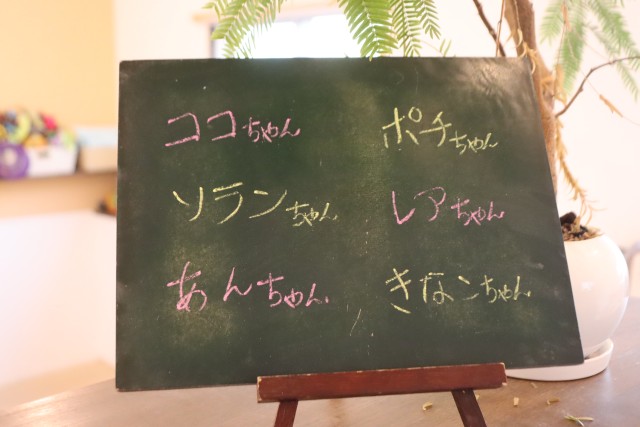 ココちゃん ポチちゃん
ソランちゃん レアちゃん
あんちゃん きなこちゃん